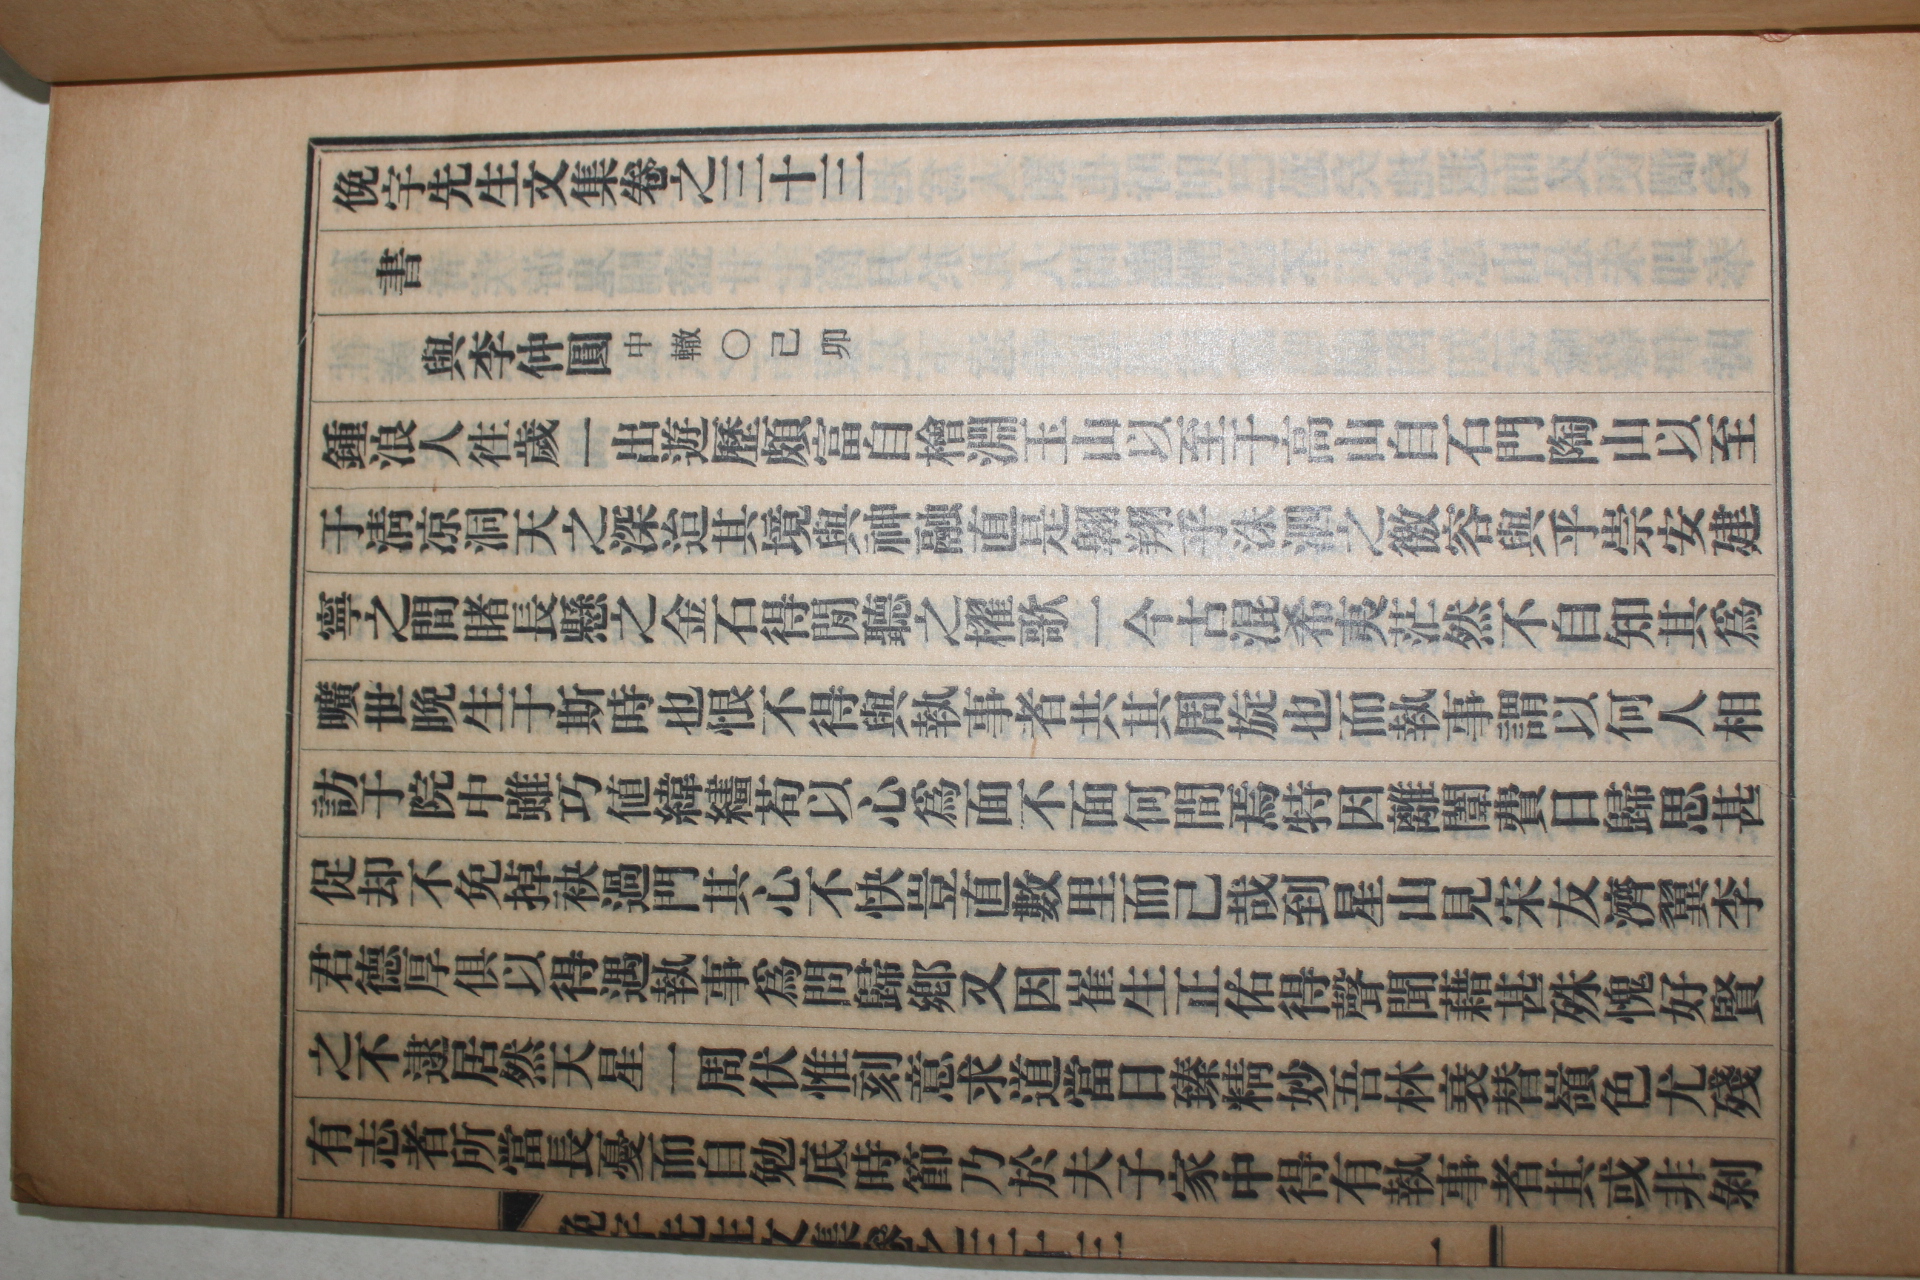 俛宇先生文集卷之三十三
書
與李仲圓中轍○己卯
鍾浪人徃歲一出遊歷頗富自檜淵玉山以至于高山自石門陶山以至
于淸凉洞天之深迨其境與神融直是翺翔乎洙泗之徹容與乎崇安建
寧之間睹長懸之金石得閒聽之櫂歌一今古混希夷茫然不自知其爲
曠世晩生于斯時也恨不得與執事者共其周旋也而執事謂以何人相
訪于院中雖巧値緯繣苟以心爲面不面何間焉特因離闈費日歸思甚
促却不免掉袂過門其心不快豈直數里而已哉到星山見宋友濟翼李
君德厚俱以得遇執事爲問歸鄕又因崔生正佑得聲聞藉甚殊愧好賢
之不逮居然天星一周伏惟刻意求道當日臻精妙吾林衰替嶺色尤殘
有志者所當長憂而自勉底時節乃於夫子家中得有執事者其或非剝
俛宇先生文集卷之三十三 一